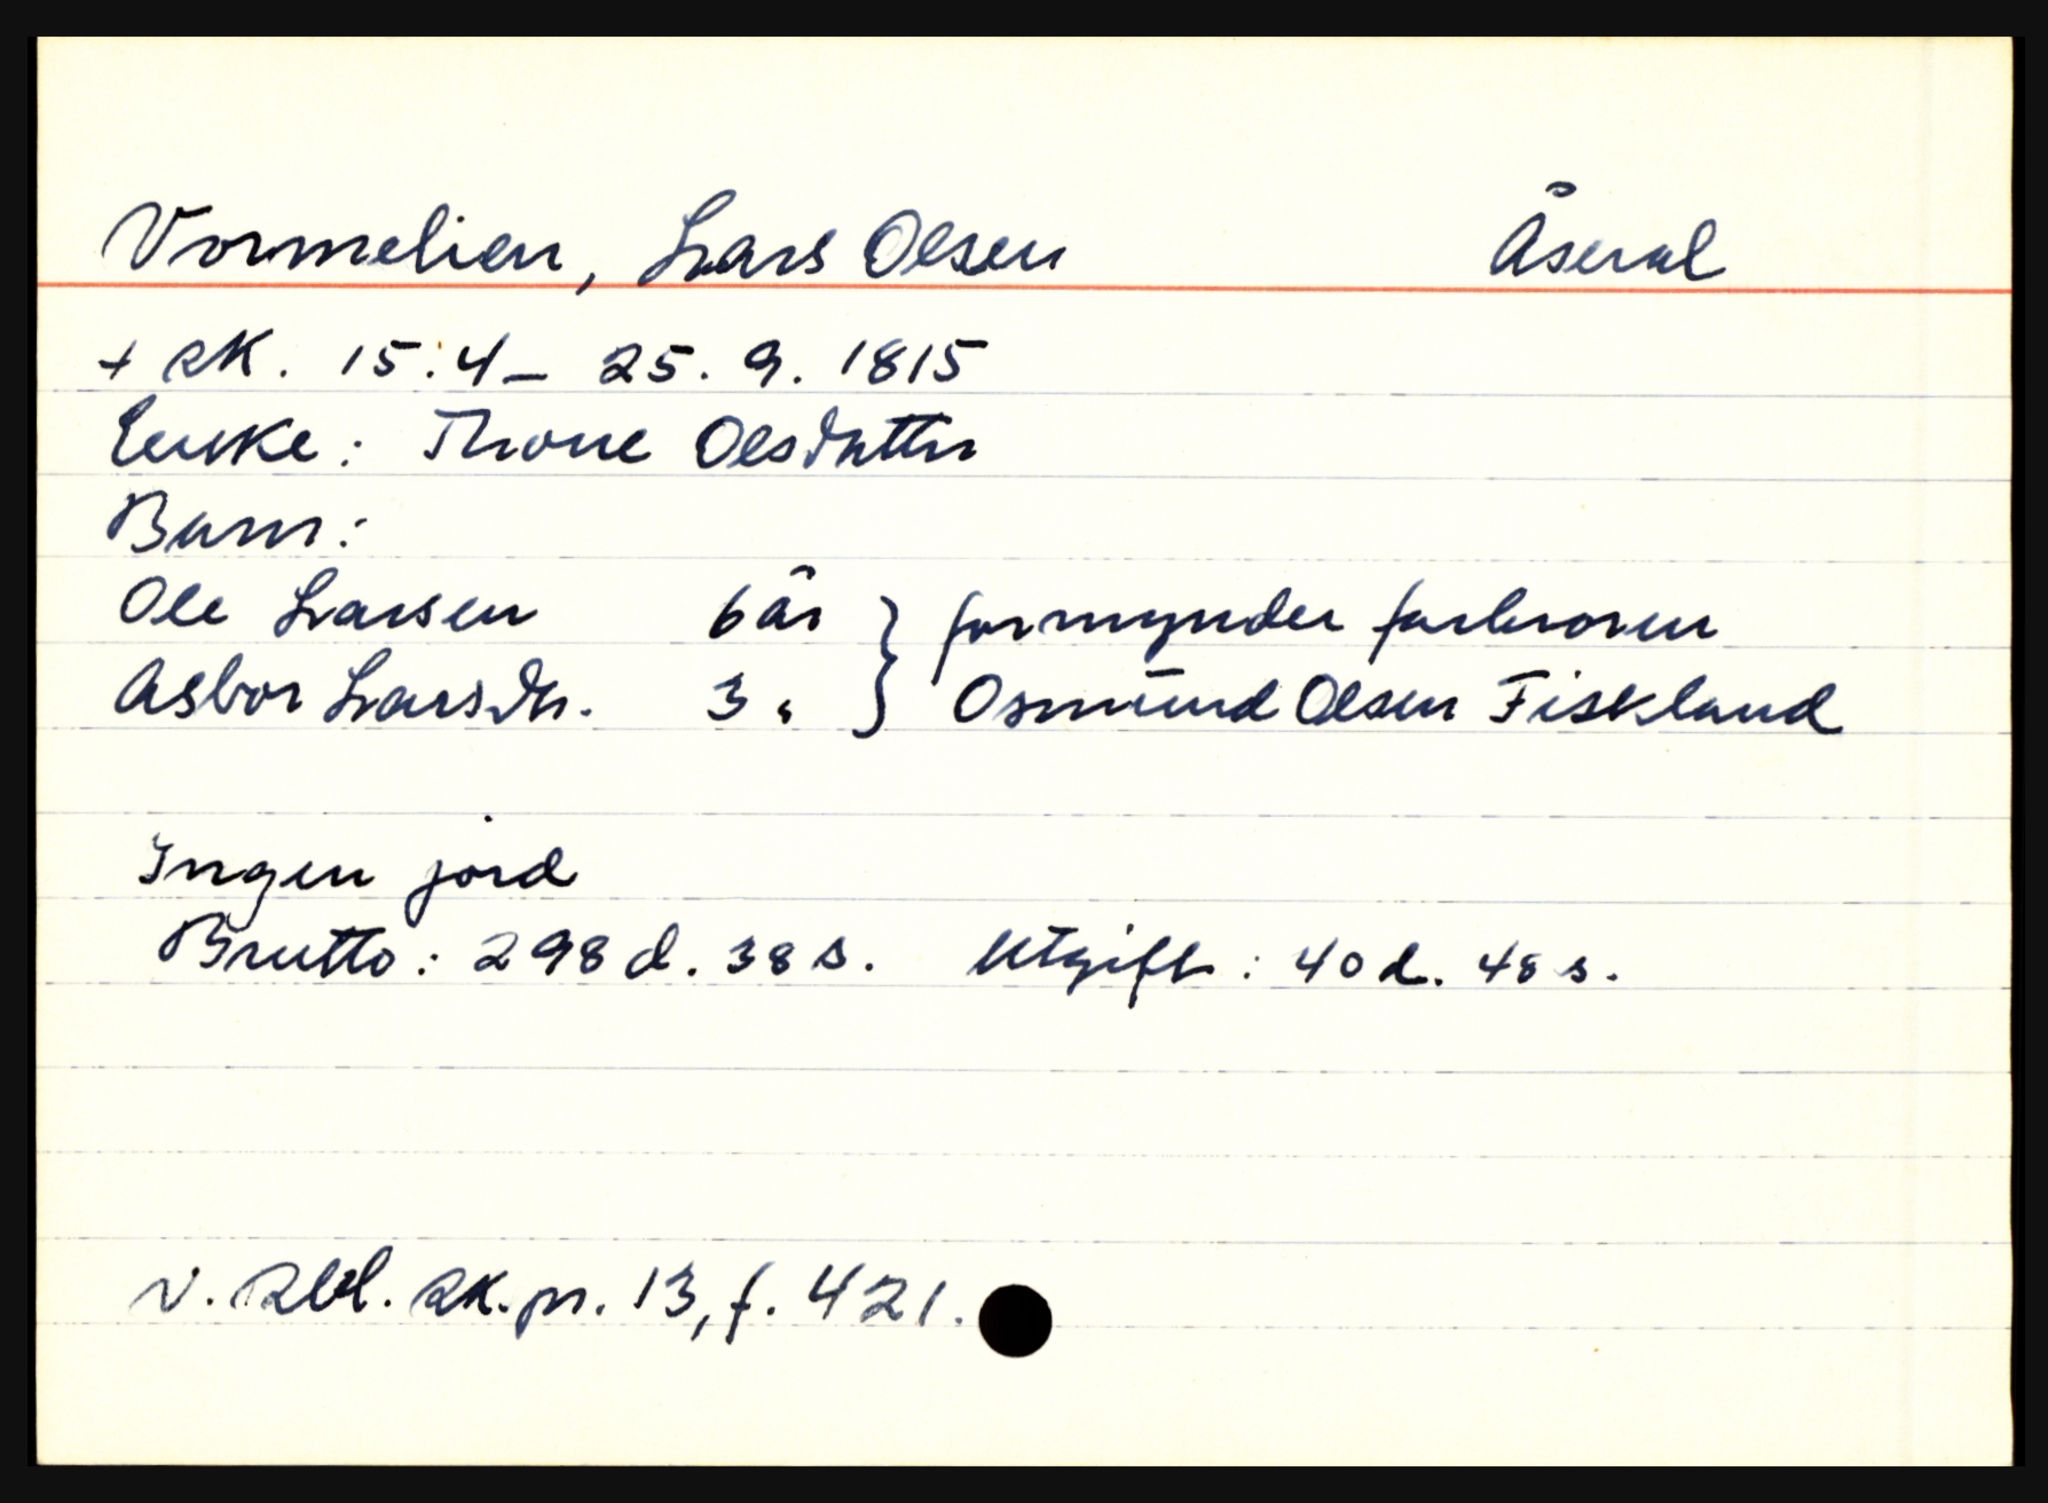 Vormelien, Lars Olsen Åseral
+ sk. 15.4 - 25. 9. 1815
Enke: Throne Olsdatter
Barn:
Ole Larsen 6 år } formynder farbroren
Asbor Larsdtr. 3 " } Osmund Olsen Fiskland
Ingen jord
Brutto: 298 d. 38 s. Utgift: 40 d. 48 s.
v. Rbl. sk.pr. 13, f. 421.